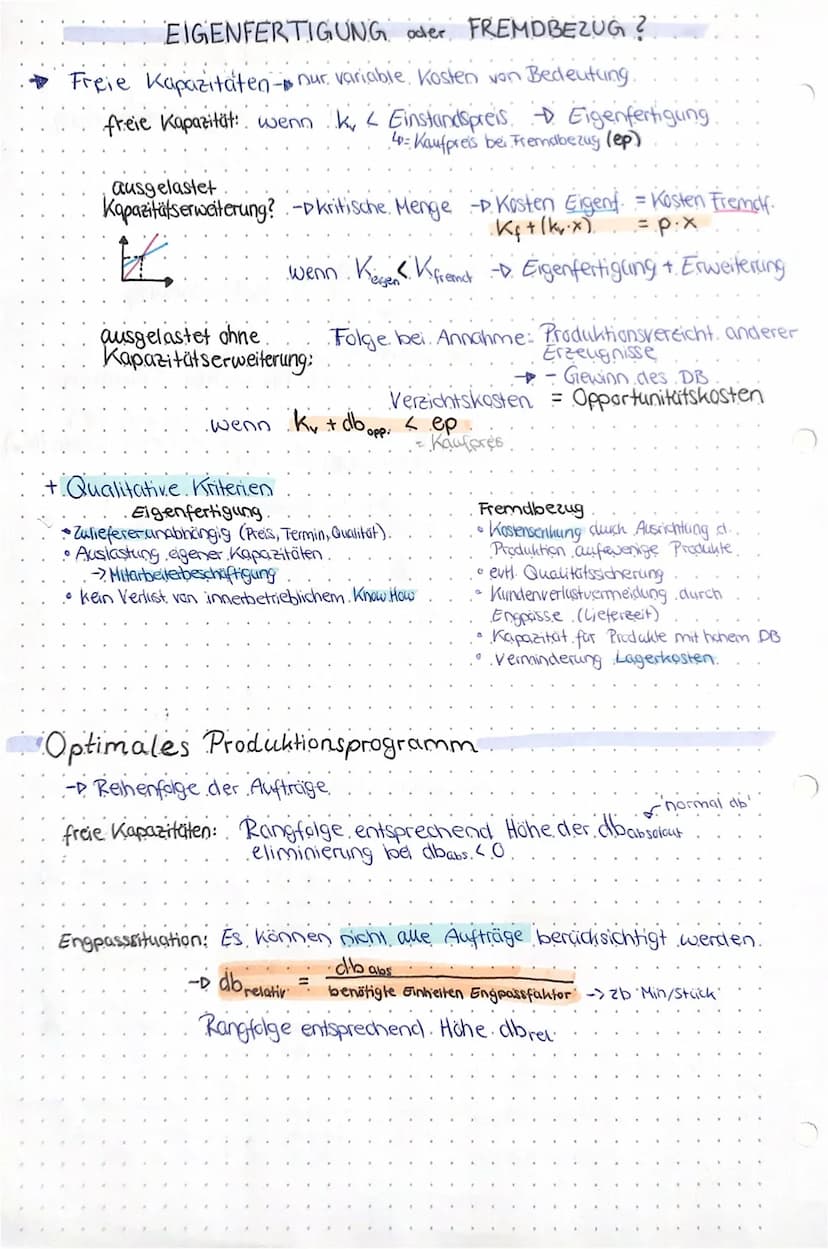 EIGENFERTIGUNG oder FREMDBEZUG?
→ Freie Kapazitäten → nur variable Kosten von Bedeutung
freie Kapazität: wenn kv < Einstandspreis → Eigenfertigung
↳ = Kaufpreis bei Fremdbezug (ep)
ausgelastet
Kapazitätserweiterung? → kritische Menge → Kosten Eigenf. = Kosten Fremdf.
Kf + (kv·x) = p·x
wenn Keigen < Kfremd → Eigenfertigung + Erweiterung
ausgelastet ohne Folge bei Annahme: Produktionsverzicht anderer
Kapazitätserweiterung: Erzeugnisse
→ - Gewinn des DB
Verzichtskosten = Opportunitätskosten
wenn kv + dbopp. < ep
= Kaufpreis
+ Qualitative Kriterien
Eigenfertigung
• Zuliefererunabhängig (Preis, Termin, Qualität)
• Auslastung eigener Kapazitäten
→ Mitarbeiterbeschäftigung
• kein Verlust von innerbetrieblichem Know How
Fremdbezug
• Kostensenkung durch Ausrichtung d.
Produktion auf wenige Produkte
• evtl. Qualitätssicherung
• Kundenverlustvermeidung durch
Engpässe (Lieferzeit)
• Kapazität für Produkte mit hohem DB
• Verminderung Lagerkosten
Optimales Produktionsprogramm
→ Reihenfolge der Aufträge
'normal db'
freie Kapazitäten: Rangfolge entsprechend Höhe der dbabsolout
eliminierung bei dbabs. < 0
Engpasssituation: Es können nicht alle Aufträge berücksichtigt werden.
→ dbrelativ = dbabs / benötigte Einheiten Engpassfaktor → zb Min/Stück
Rangfolge entsprechend Höhe dbrel